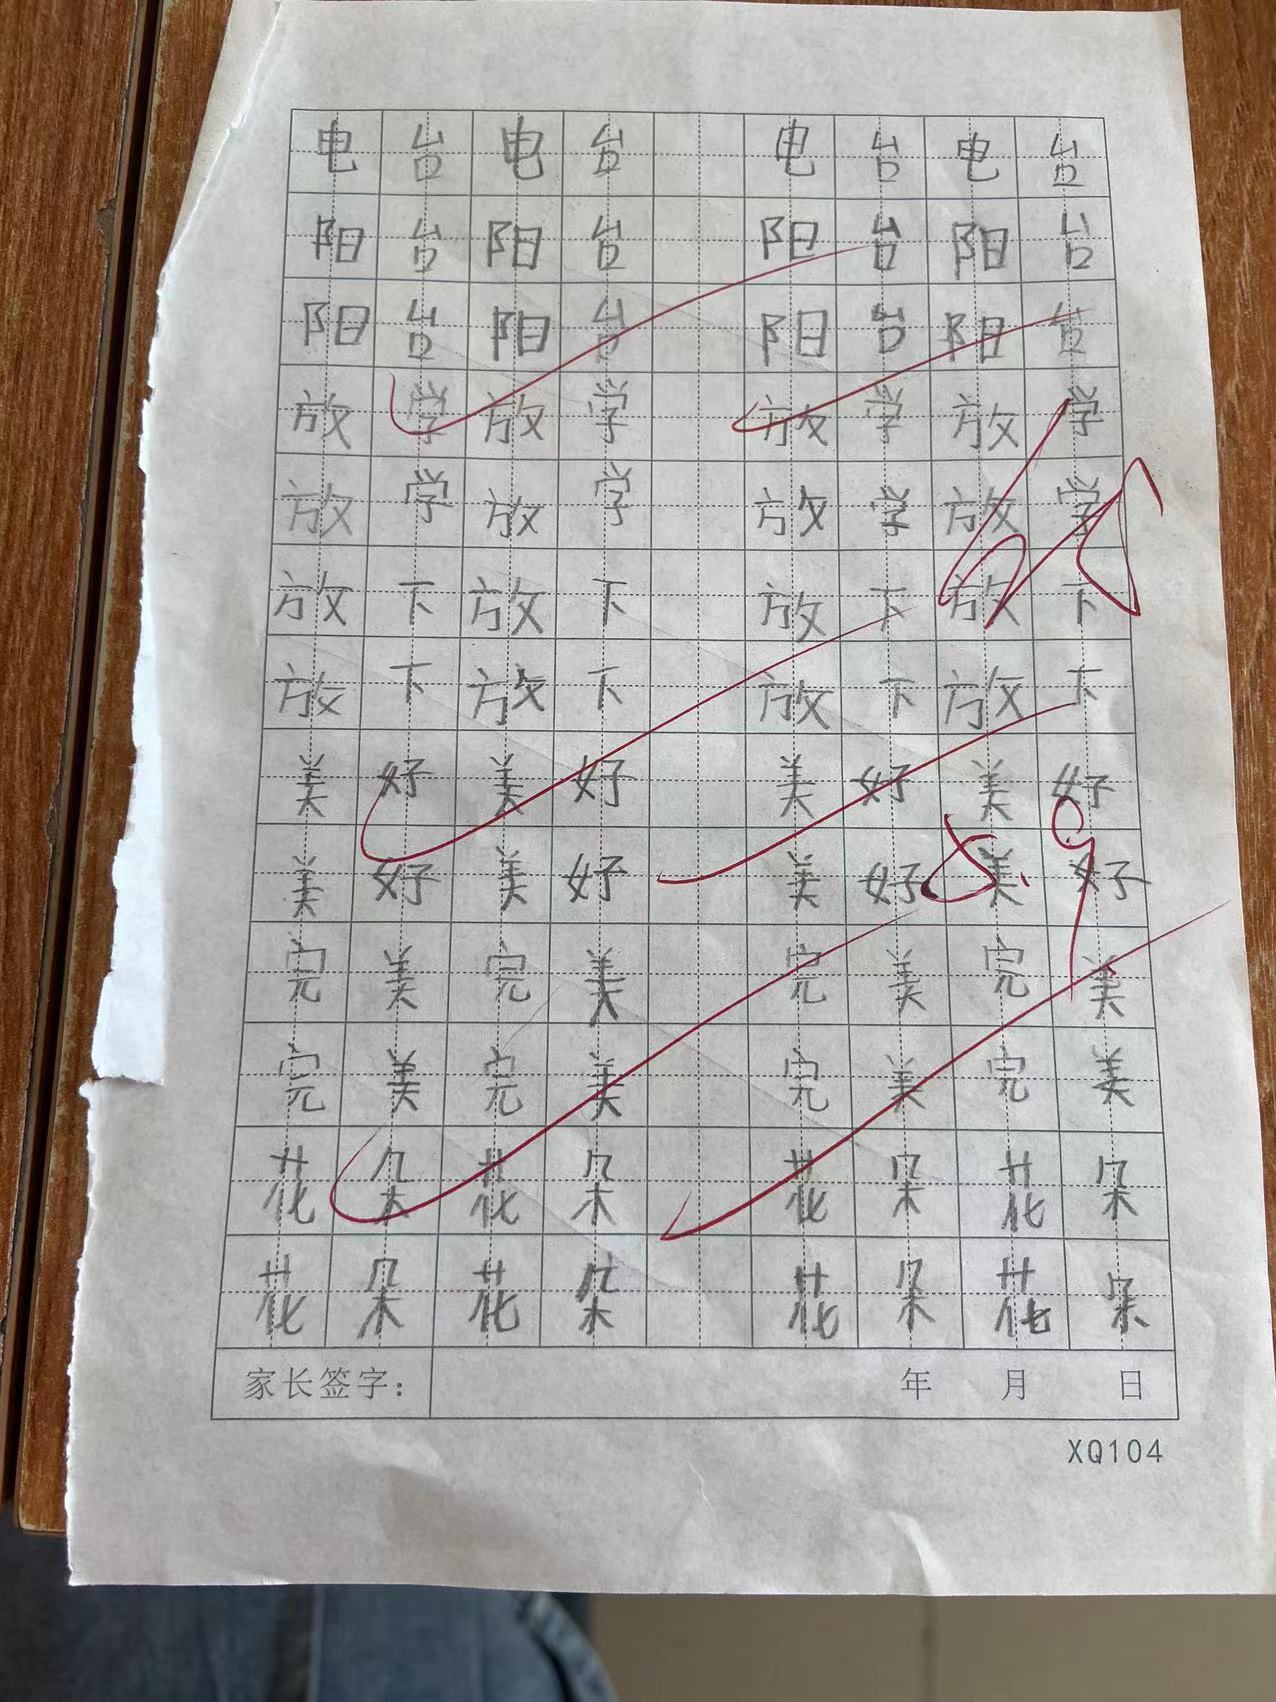 电台电台 电台电台
阳台阳台 阳台阳台
阳台阳台 阳台阳台
放学放学 放学放学
放学放学 放学放学
放下放下 放下放下
放下放下 放下放下
美好美好 美好美好
美好美好 美好美好
5.9
完美完美 完美完美
完美完美 完美完美
花朵花朵 花朵花朵
花朵花朵 花朵花朵
家长签字： 年 月 日
XQ104